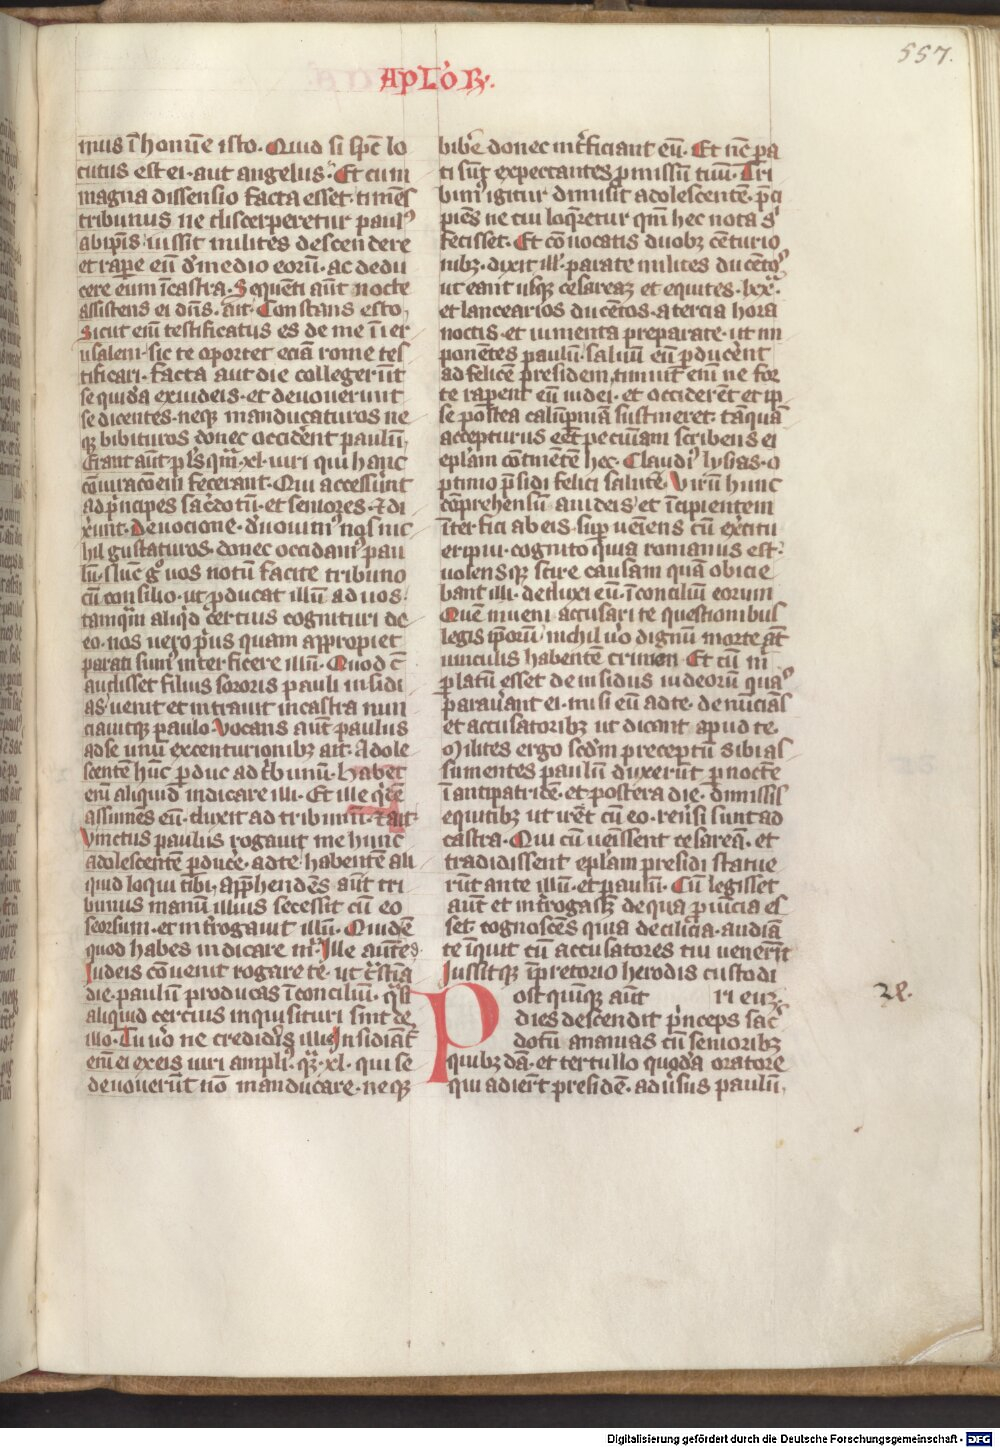 557.
Aplorꝝ.
mus ī homīe isto. Quid si spc̄ lo
cutus est ei aut angelus. Et cum
magna dissensio facta esset. timēs
tribunus ne discerperetur paulꝰ
ab ip̄is. iussit milites descendere
et rape eū de medio eorū. ac dedu
cere eum ī castra. Sequēti aūt nocte
assistens ei dn̄s. ait. Constans esto
Sicut eīm testificatus es de me ī ier
usalem. sic te oportet eciā rome tes
tificari. facta aut die collegerūt
se quidā ex iudeis. et devouerunt
se dicentes. neqꝫ manducaturos ne
qꝫ bibituros donec occidēnt paulū.
Erant aūt pl̄s qm̄. xl. uiri qui hanc
cōiuracōem fecerant. Qui accesserūt
ad prīncipes sacdotū. et seniores. et di
xerūt. Devocione devouimꝰ nos nic
hil gustaturos. donec occidamꝰ pau
lū. Nūc gͦ uos notū facite tribuno
cū consilio. ut pducat illū ad uos.
tamqm̄ aliqd certius cognituri de
eo. nos uero prius quam appropiet
parati sumꝰ interficere illū. Quod c̄
audisset filius sororis pauli insidi
as. uenit et intrauit in castra nun
ciauitqꝫ paulo. Vocans aūt paulus
ad se unū ex centurionibꝫ ait. Adole
scentē hūc pduc ad tribunū. habet
enī aliquid indicare illi. Et ille qidē
assumēs eū. duxit ad tribunū. et ait.
Vinctus paulus rogauit me hunc
adolescentē pducere ad te. habentē ali
quid loqui tibi. app̄hendēs aūt tri
bunus manū illius secessit cū eo
seorsum. et introgauit illū. Quid ē
quod habes indicare mͥ. Ille autē
Iudeis cōuenit rogare te. ut crastīa
die. paulū producas ī conciliū. qͣsi
aliquid cercius inquisituri sint de
illo. Tu uͦo ne credideris illis. Insidiāt
enī ei ex eis uiri ampliꝰ. qͣꝫ. xl. qui se
devouerūt nō manducare. neqꝫ
bibere donec intficiant eū. Et nūc pa
ti sūt expectantes pmissū tuū. Tri
bunꝰ igitur dimisit adolescentē. pci
piēs ne cui loqueretur qm̄ hec nota sͥ
fecisset. Et cō uocatis duobꝫ cēturio
nibꝫ. dixit illꝭ. parate milites ducētos
ut eant usqꝫ cesareaꝫ et equites. lxx.
et lancearios ducētos. a tercia hora
noctis. et iumenta preparate. ut im
ponētes paulū. saluū eū pducerent
ad felicē presidem, timuit enī ne for
te rapent eū iudei. et occiderēt et ip
se postea calūpniā sustineret. tāquā
accepturus eēt pecuniam. scribens ei
eplam cōtinētē hec. Claudiꝰ lysias. o
ptimo psidi felici salutē. Virū hunc
cōprehensū a iudeis. et īcipientem
īterfici ab eis. supueniens cū exercitu
eripui. cognito quia romanus est.
uolensqꝫ scire causam quā obicie
bant illi. deduxi eū. ī conciliū eorum
Quē inueni accusari te questionibus
legis ipsorū nichil uͦo dignū morte aūt
uinculis habentē crimen. Et cū mͥ
platū esset de insidiis iudeorū quas
parauerant ei. misi eū ad te. denūciās
et accusatoribꝫ ut dicant apud te.
Milites ergo scdm̄ preceptū sibi as
sumentes paulū duxerūt p noctē
ī antipatridē. et postera die. dimissis
equitibꝫ ut irēt cū eo. reusi sunt ad
castra. Qui cū uēissent cesareā. et
tradidissent eplam presidi. statue
rūt ante illū. et paulū. Cū legisset
aūt et introgassꝫ de qua puīcia es
set. cognoscens quia de cilicia. audiā
te īquit cū accusatores tui uenerīt
Iussitqꝫ ī pretorio herodis custodi
ri eūꝫ.
Post quīqꝫ aūt
dies descendit prīnceps sac̄
dotū ananias cū senioribꝫ
quibꝫdā. et tertullo quodā oratore
qui adierūt presidē. aduͥsus paulū.